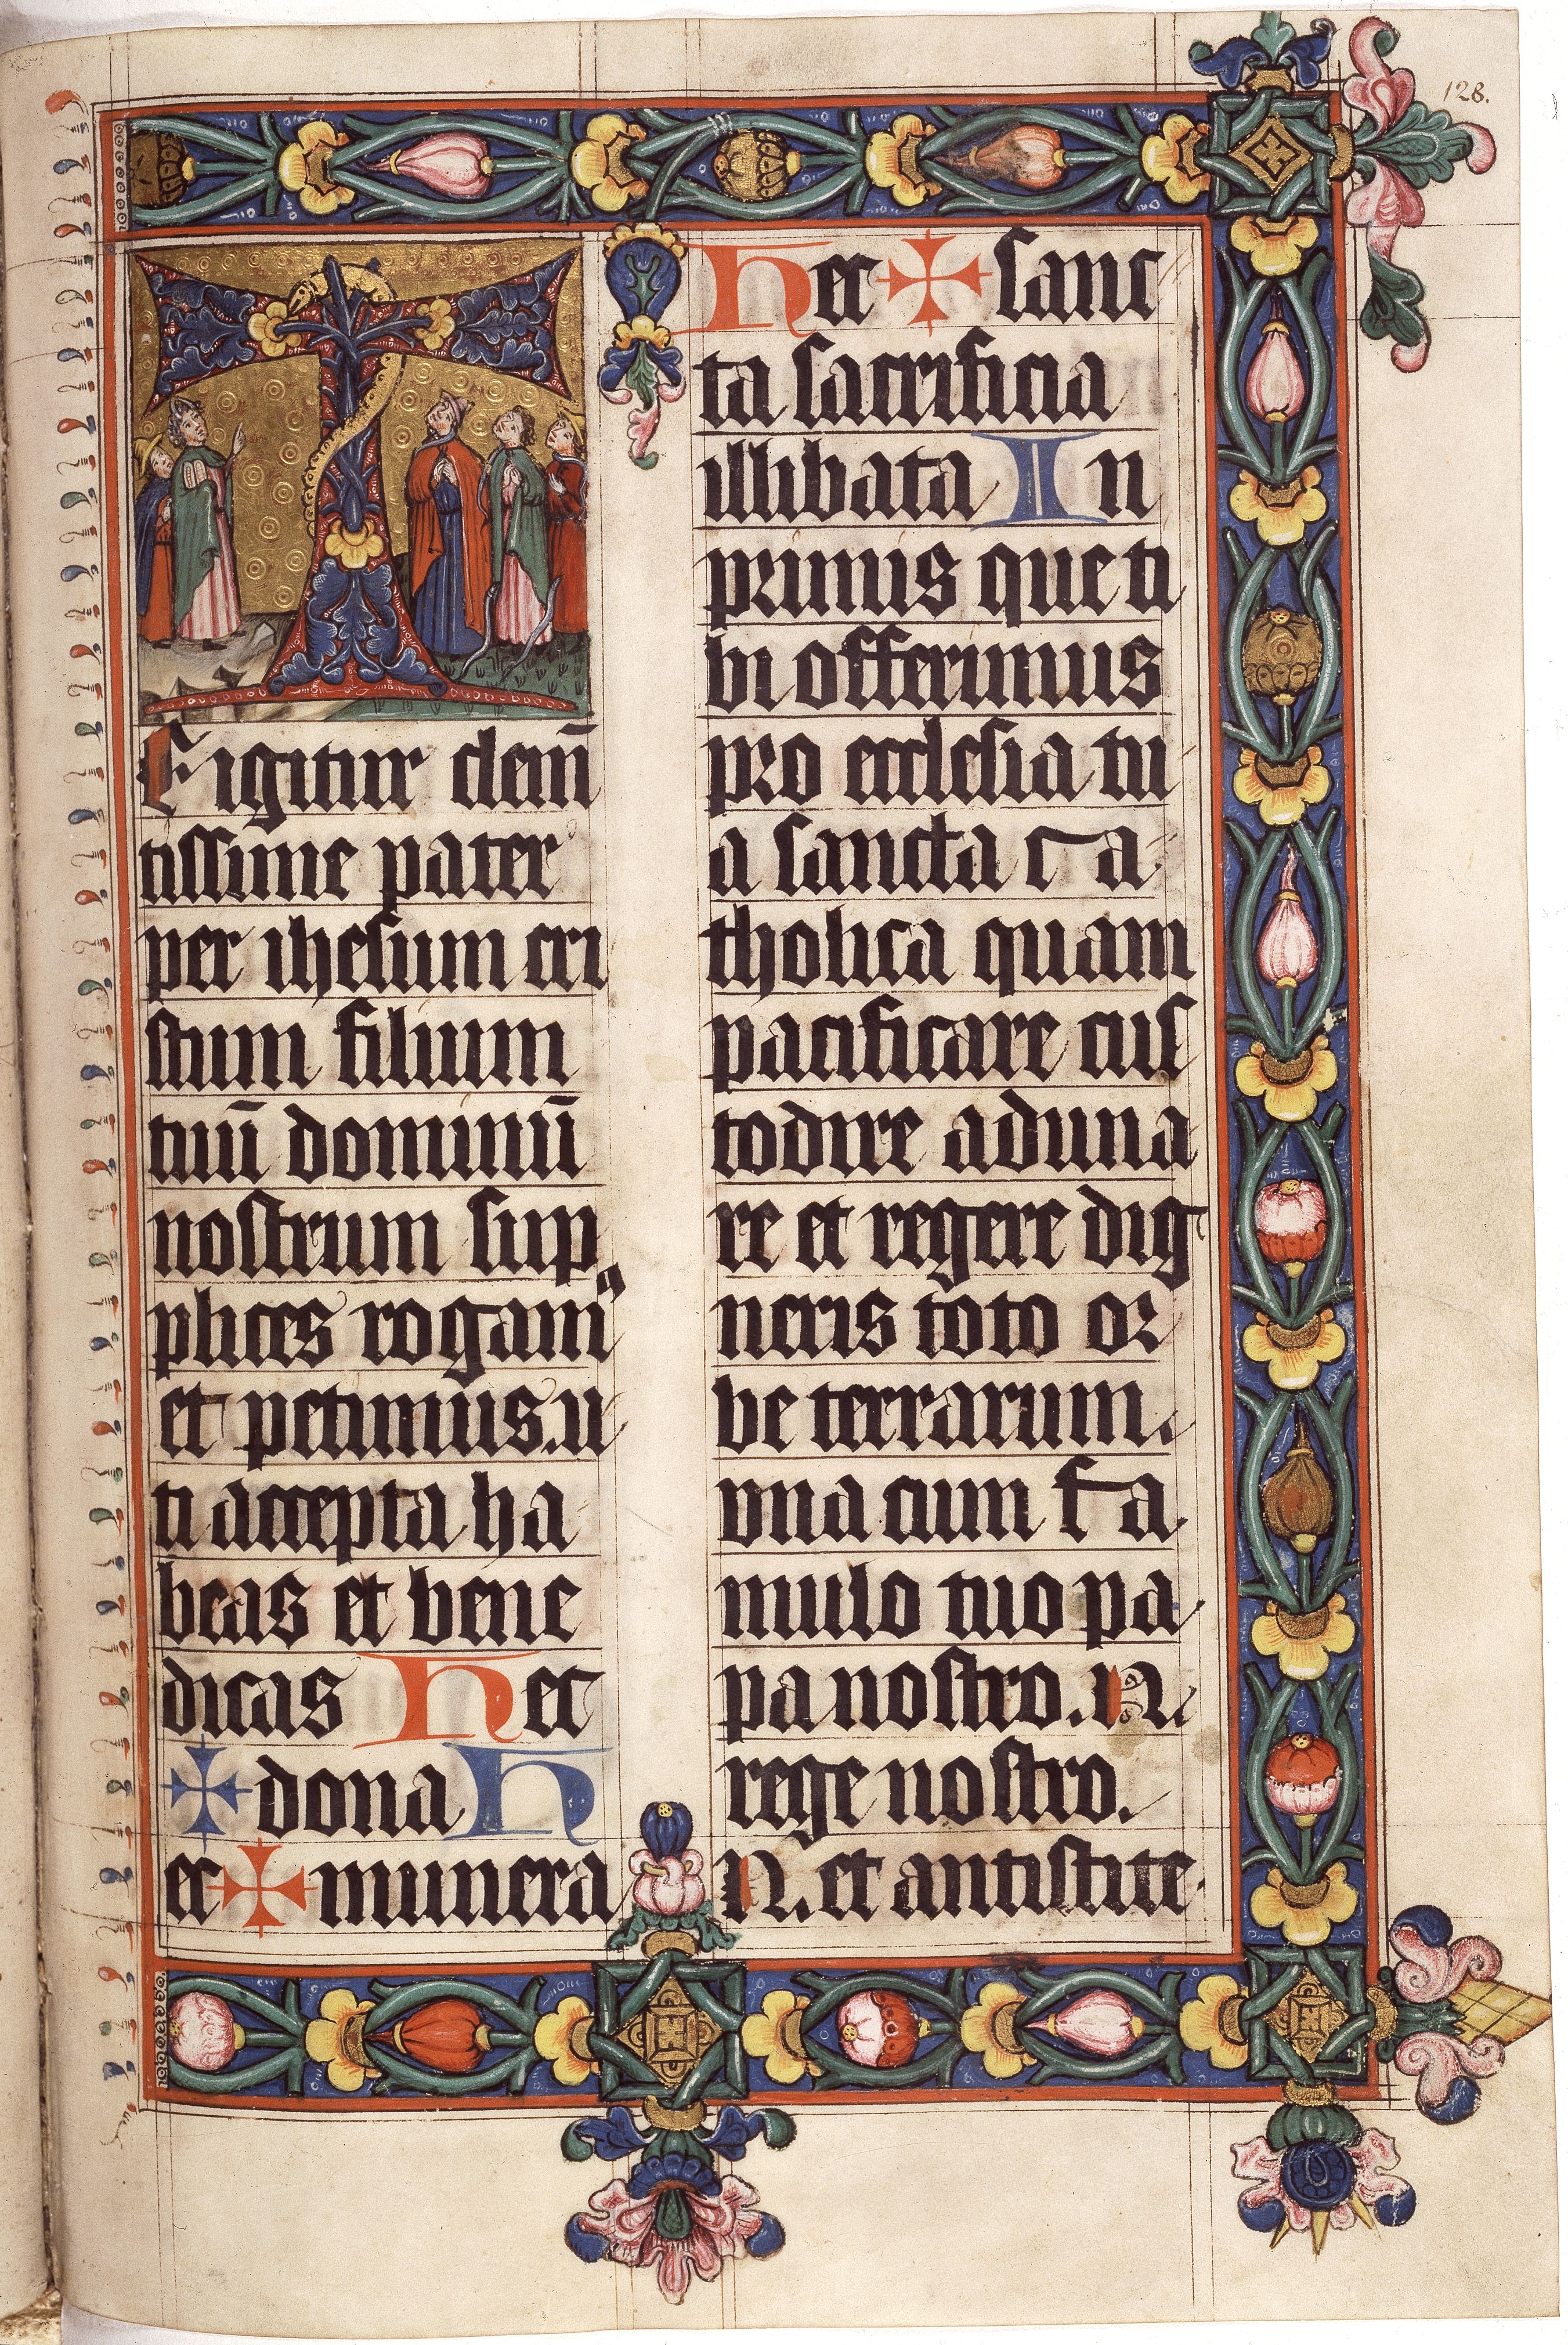 128.
T
E igitur clem̄
tissime pater
per ihesum cri
stum filium
tuū dominū
nostrum sup
plices rogam9
et petimus. u
ti accepta ha
beas et bene
dicas Hec
✠ dona H
ec ✠ munera
Hec ✠ sanc
ta sacrificia
illibata In
primis que ti
bi offerimus
pro ecclesia tu
a sancta ca
tholica quam
pacificare cus
todire aduna
re et regere dig
neris toto or
be terrarum.
vna cum fa
mulo tuo pa
pa nostro. N.
rege nostro.
N. et antistite